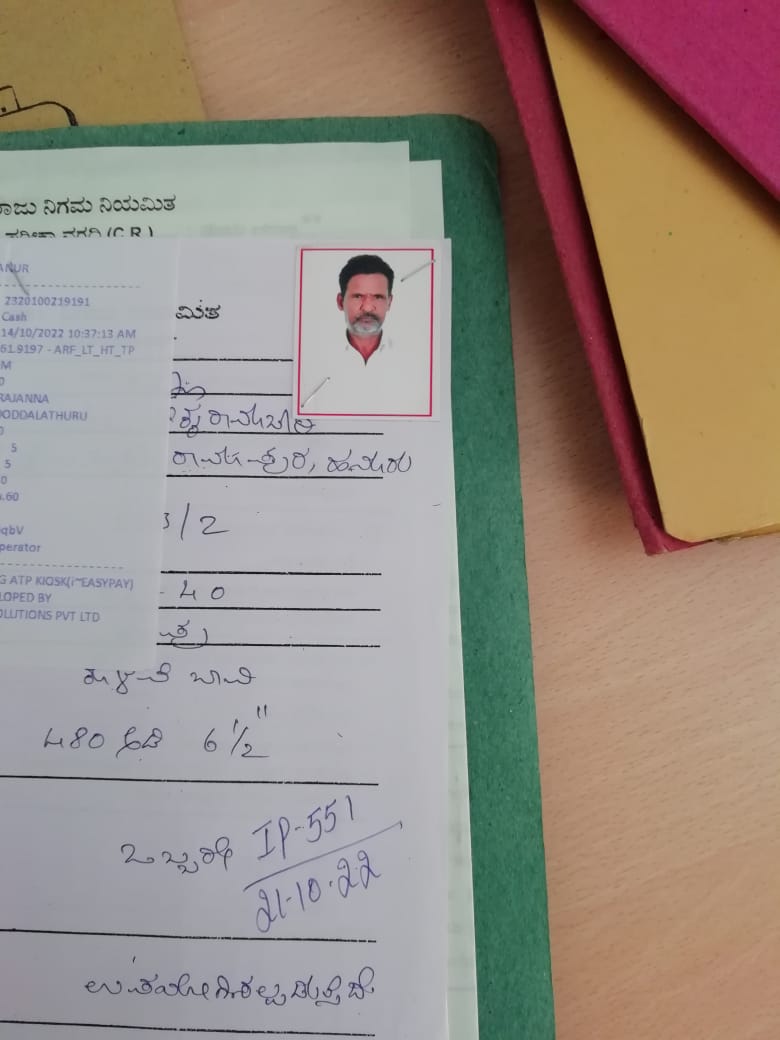 ರಾಜು ನಿಗಮ ನಿಯಮಿತ
(C.R.)
ANUR
2320100219191
Cash
14/10/2022 10:37:13 AM
61.9197 - ARF_LT_HT_TP
M
0
RAJANNA
DODDALATHURU
0
5
5
0
.60
qbV
perator
G ATP KIOSK(i~EASYPAY)
LOPED BY
OLUTIONS PVT LTD
ಮಿತ
ಹನೂರು
3/2
- 40
ಕೊಳವೆ ಬಾವಿ
480 ಅಡಿ 6 1/2"
ಒಬ್ಬರೇ IP-551
21-10-22
ಉಪಯೋಗಿಸಲ್ಪಡುತ್ತದೆ